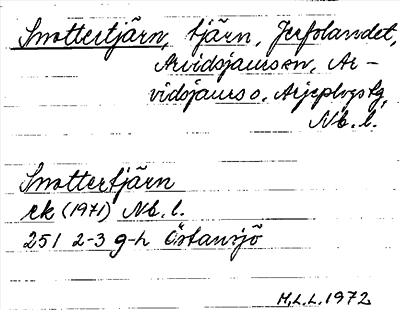 Snottertjärn, tjärn, Jerfolandet,
Arvidsjaurs sn, Ar-
vidsjaurs o. Arjeplogs tg,
Nb. l.
Snottertjärn
ek (1971) Nb. l.
25I 2-3 g-h Östansjö
M.L.L. 1972